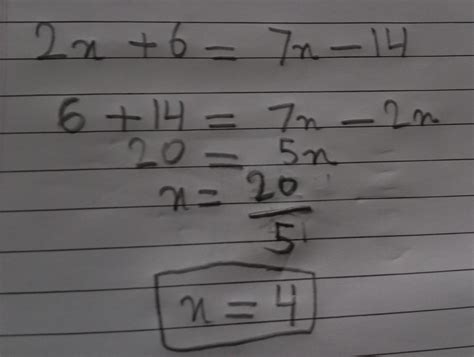 2x + 6 = 7x - 14
6 + 14 = 7x - 2x
20 = 5x
x = 20/5
x = 4